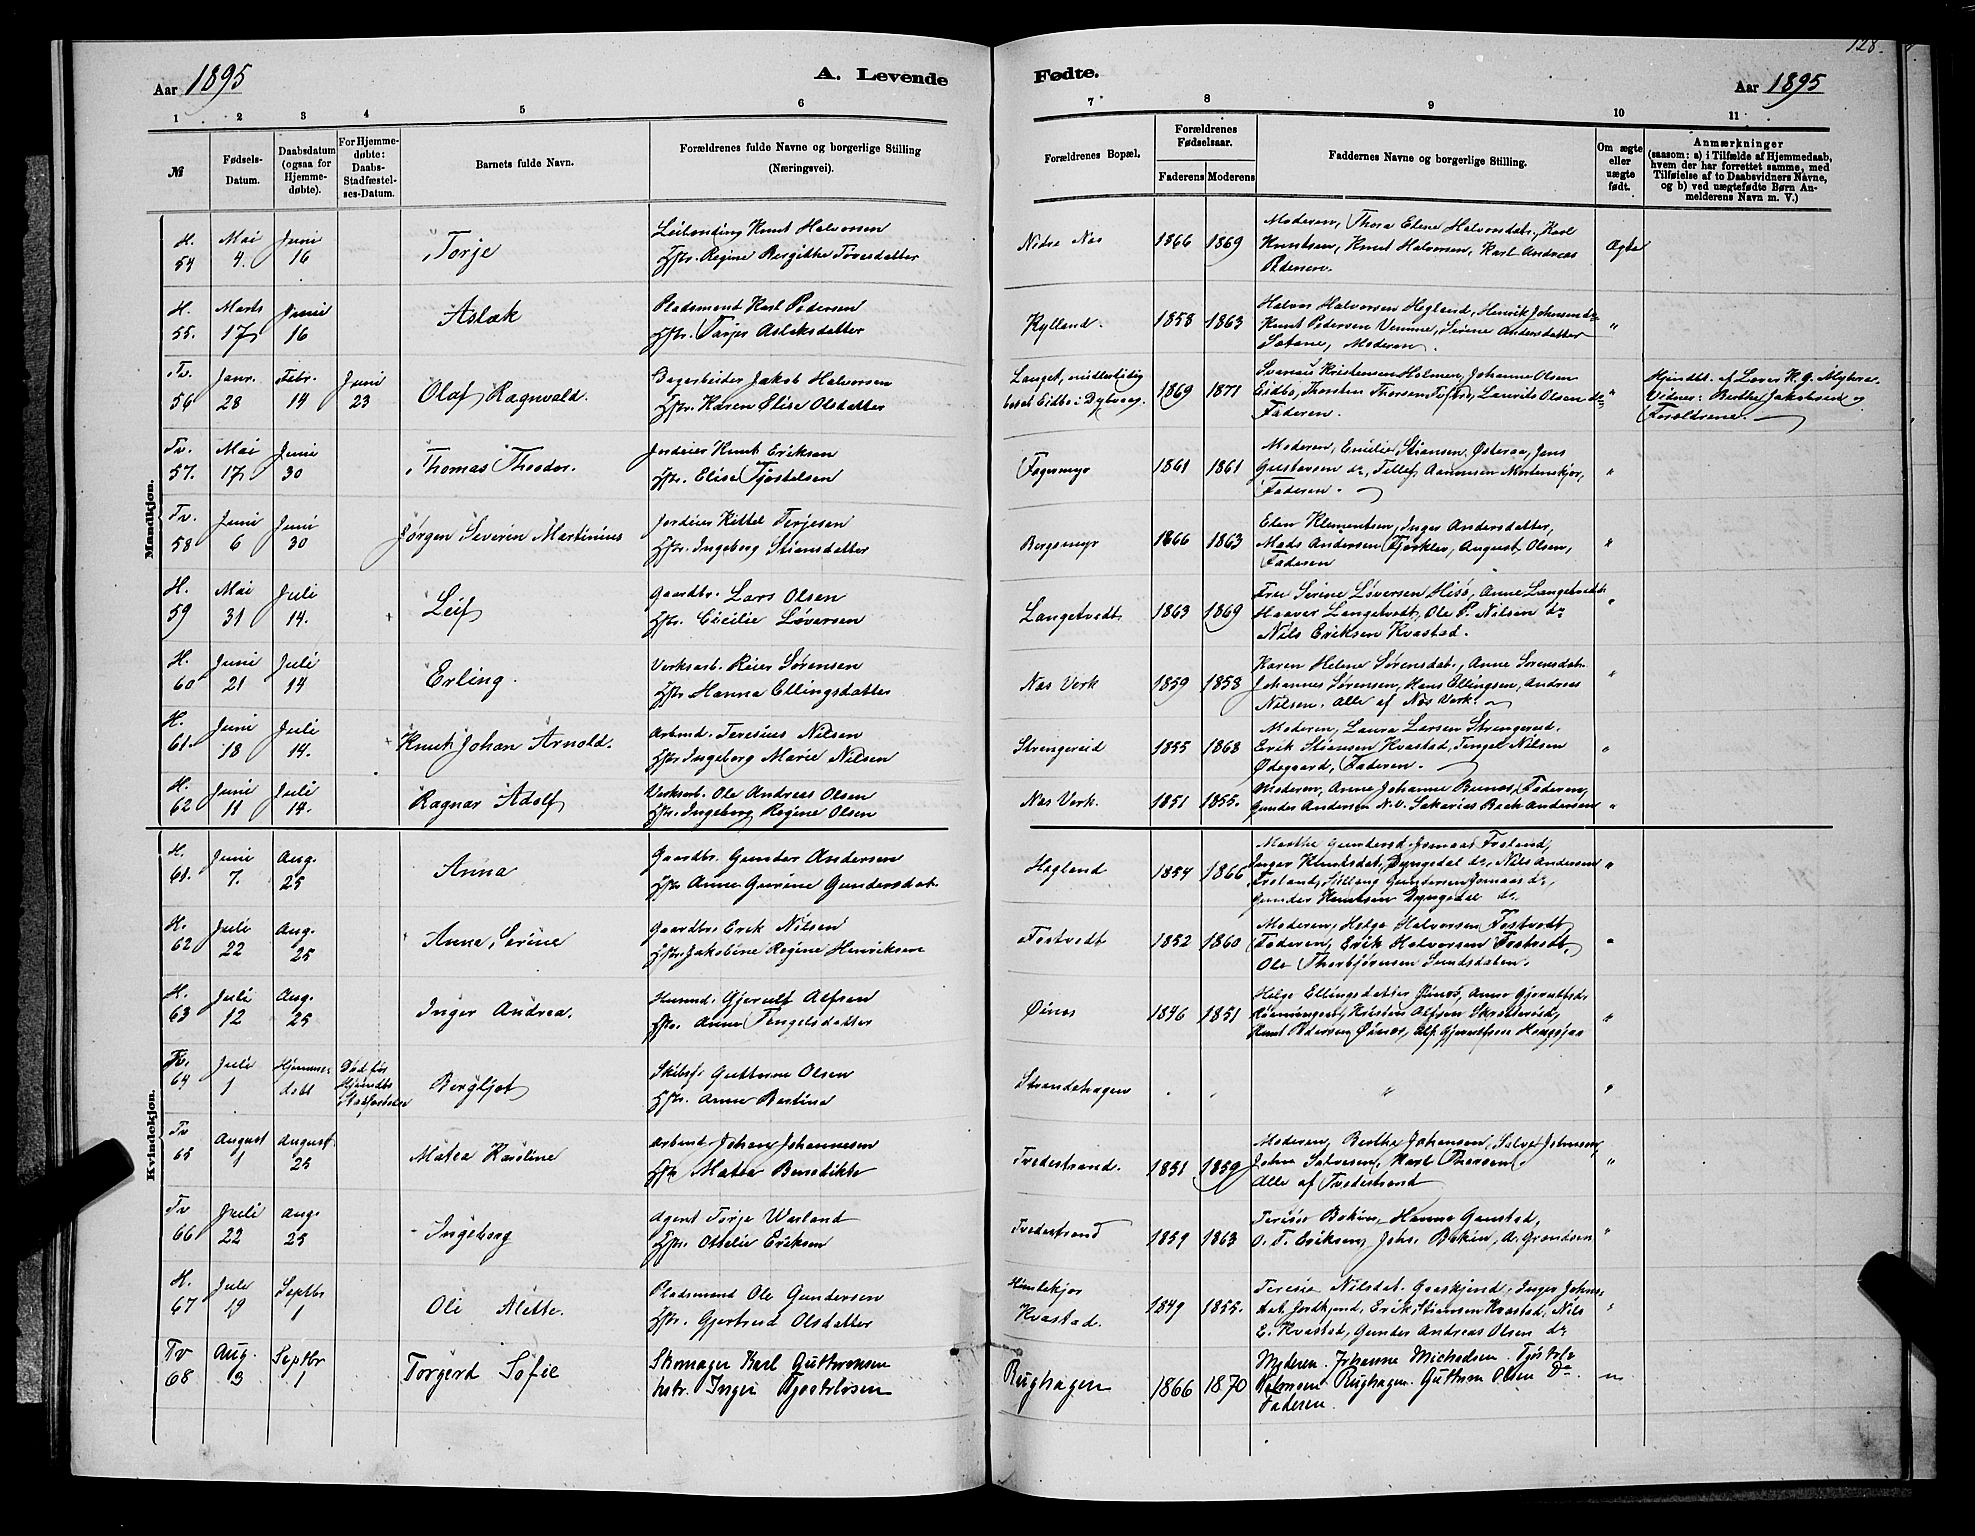 128.
Aar 1895
A. Levende
Fødte.
Aar 1895
1 2 3 4 5 6 7 8 9 10 11
№
Fødsels-
Datum.
Daabsdatum
(ogsaa for
Hjemme-
døbte).
For Hjemme-
døbte:
Daabs-
Stadfæstel-
ses-Datum.
Barnets fulde Navn.
Forældrenes fulde Navne og borgerlige Stilling
(Næringsvei).
Forældrenes Bopæl.
Forældrenes
Fødselsaar.
Faderens Moderens
Faddernes Navne og borgerlige Stilling.
Om ægte
eller
uægte
født.
Anmærkninger
(saasom: a) i Tilfælde af Hjemmedaab,
hvem der har forrettet samme, med
Tilføielse af to Daabsvidners Navne,
og b) ved uægtefødte Børn An-
melderens Navn m. V.)
Mandkjøn.
H. 54 Mai 4. Juni 16
Torje
Leilending Knut Halvorsen
Hstr. Regine Bergitte Toresdatter
Nedre Næs 1866 1869
Moderen, Thora Elene Halvorsdatr., Karl
Knutsen, Knut Halvorsen, Karl Andreas
Pedersen.
Ægte
H. 55. Marts 17 Juni 16
Aslak
Pladsmand Karl Pedersen
Hstr. Tarjer Aslaksdatter
Kylland. 1858 1863
Halvor Halvorsen Hegland, Henrik Johnsen do
Knut Pedersen Vemme, Serine Andersdatter
Sætane, Moderen.
"
Tv. 56 Janr. 28 Febr. 14 Juni 23
Olaf Ragnvald.
Jakob Halvorsen
Hstr. Karen Elise Olsdatter
Langet, midlertidig
bosat Eidbo i Dybvaag. 1869 1871
Kristensen Holmen, Johanne Olsen
Eidbo, Thorsten Thorsen, Laurits Olsen do
Faderen.
"
Hjmdbt. af Lærer
Vidner: Berthe Jakobsen og
Forældrene.
Tv. 57. Mai 17 Juni 30
Thomas Theodor.
Jordeier Knut Eriksen
Hstr. Elise Tjøstelsen
Fogermyr 1861 1861
Moderen, Emilie Stiansen Østeraa, Jens
Gustavsen do, Tellef Aanonsen Mortenskjær,
Faderen.
"
Tv. 58 Juni 6 Juni 30
Jørgen Severin Martinius
Jordeier Kittel Terjesen
Hstr. Ingeborg Stiansdatter
Bergsmyr 1866 1863
Elen Klementsen, Inger Andersdatter,
Mads Andersen Fjærkleiv, August Olsen,
Faderen
"
H. 59 Mai 31 Juli 14.
Leif
Gaardbr. Lars Olsen
Hstr. Cicilie Løversen
Langetvedt 1863 1869
Frue Serine Løversen Hisø, Anne Langetvedt
Haaver Langetvedt, Ole P. Nilsen do
Nils Eriksen Kvastad.
"
H. 60 Juni 21 Juli 14
Erling.
Verksarb. Reier Sørensen
Hstr. Hanna Ellingsdatter
Næs Verk 1859 1858
Karen Helene Sørensdatr., Anne Sørensdatr.
Johannes Sørensen, Hans Ellingsen, Andreas
Nilsen. Alle af Næs Verk.
"
H. 61. Juni 18 Juli 14.
Knut Johan Arnold.
Arbmd. Teresius Nilsen
Hstr. Ingeborg Marie Nilsen
Strengereid 1855 1868
Moderen, Laura Larsen Strengereid.
Erik Stiansen Kvastad, Tengel Nilsen
Ødegaard, Faderen.
"
H. 62 Juni 11 Juli 14.
Ragnar Adolf
Verksarb. Ole Andreas Olsen
Hstr. Ingeborg Regine Olsen
Næs Verk. 1851 1855.
Moderen, Anne Johanne Berнæs, Faderen,
Gunder Andersen N.V. Sakarias Beck Andersen
"
Kvindekjøn.
H. 61. Juni 7. Aug. 25
Anna
Gaardbr. Gunder Andersen
Hstr Anne Gurine Gundersdat.
Hegland 1854 1866
Marthe Gundersd. Jomaas Froland,
Inger Knutsdat. Dyngedal do, Nils Andersen
Froland, Gundersen Jomaas do,
Gunder Knutsen Dyngedal do.
"
H. 62 Juli 22 Aug. 25
Anna Serine
Gaardbr. Erik Nilsen
Hstr. Jakobine Regine Henriksen
Fostvedt 1852 1860
Moderen, Helge Halvorsen Fostvedt,
Faderen, Erik Halvorsen Fostvedt,
Ole Thorbjørnsen Sundsdalen.
"
H. 63 Juli 12 Aug. 25
Inger Andrea.
Husmd. Gjerulf Alfsen
Hstr. Anne Tengelsdatter
Øinæs 1846 1851
Helge Ellingsdatter Øinæs, Anne Gjerulfsdr.
Kristen Alfsen Skretterød,
Knut Pedersen Øinæs, Alf Gjerulfsen
"
Tv. 64 Juli 1 Hjemme-
døbt Død før
Hjmdbs.
Stadfæstelse
Bergljot
Skibsf. Guttorm Olsen
Hstr. Anne Bertine
Strandehagen " " "
"
Tv 65 August 1 August 25
Matea Karoline
Arbmd. Johan Johannesen
Hstr Matea Benedikte
Tvedestrand. 1851 1859
Moderen, Berthe Johansen, Salve Johnsen,
John Salvesen, Karl Thorsen.
Alle af Tvedestrand
"
Tv 66 Juli 22 Aug. 25
Ingeborg
Agent Torje Værland
Hstr. Ottilie Eriksen
Tvedestrand 1859 1863
Terese Bakin, Hanna Ganstad,
O. T. Eriksen, Johs. Bakin, A. Grendsen
"
H. 67 Juli 19 Septbr 1
Oli Alette.
Pladsmand Ole Gundersen
Hstr. Gjertrud Olsdatter
Humlekjær
Kvastad. 1849 1855.
Terese Nilsdat. Goaskjend, Inger Johns-
dat. Jordkjend, Erik Stiansen Kvastad, Nils
E. Kvastad, Gunder Andreas Olsen do
"
Tv 68 Aug. 3 Septbr 1
Torgerd Sofie
Skomager Karl Guttormsen
Hstr. Inger Tjøstelsen
Rughagen 1866 1870
Moderen. Johanne Michaelsen. Tjøstel
Salvesen Rughagen. Guttorm Olsen Do.
Faderen.
"